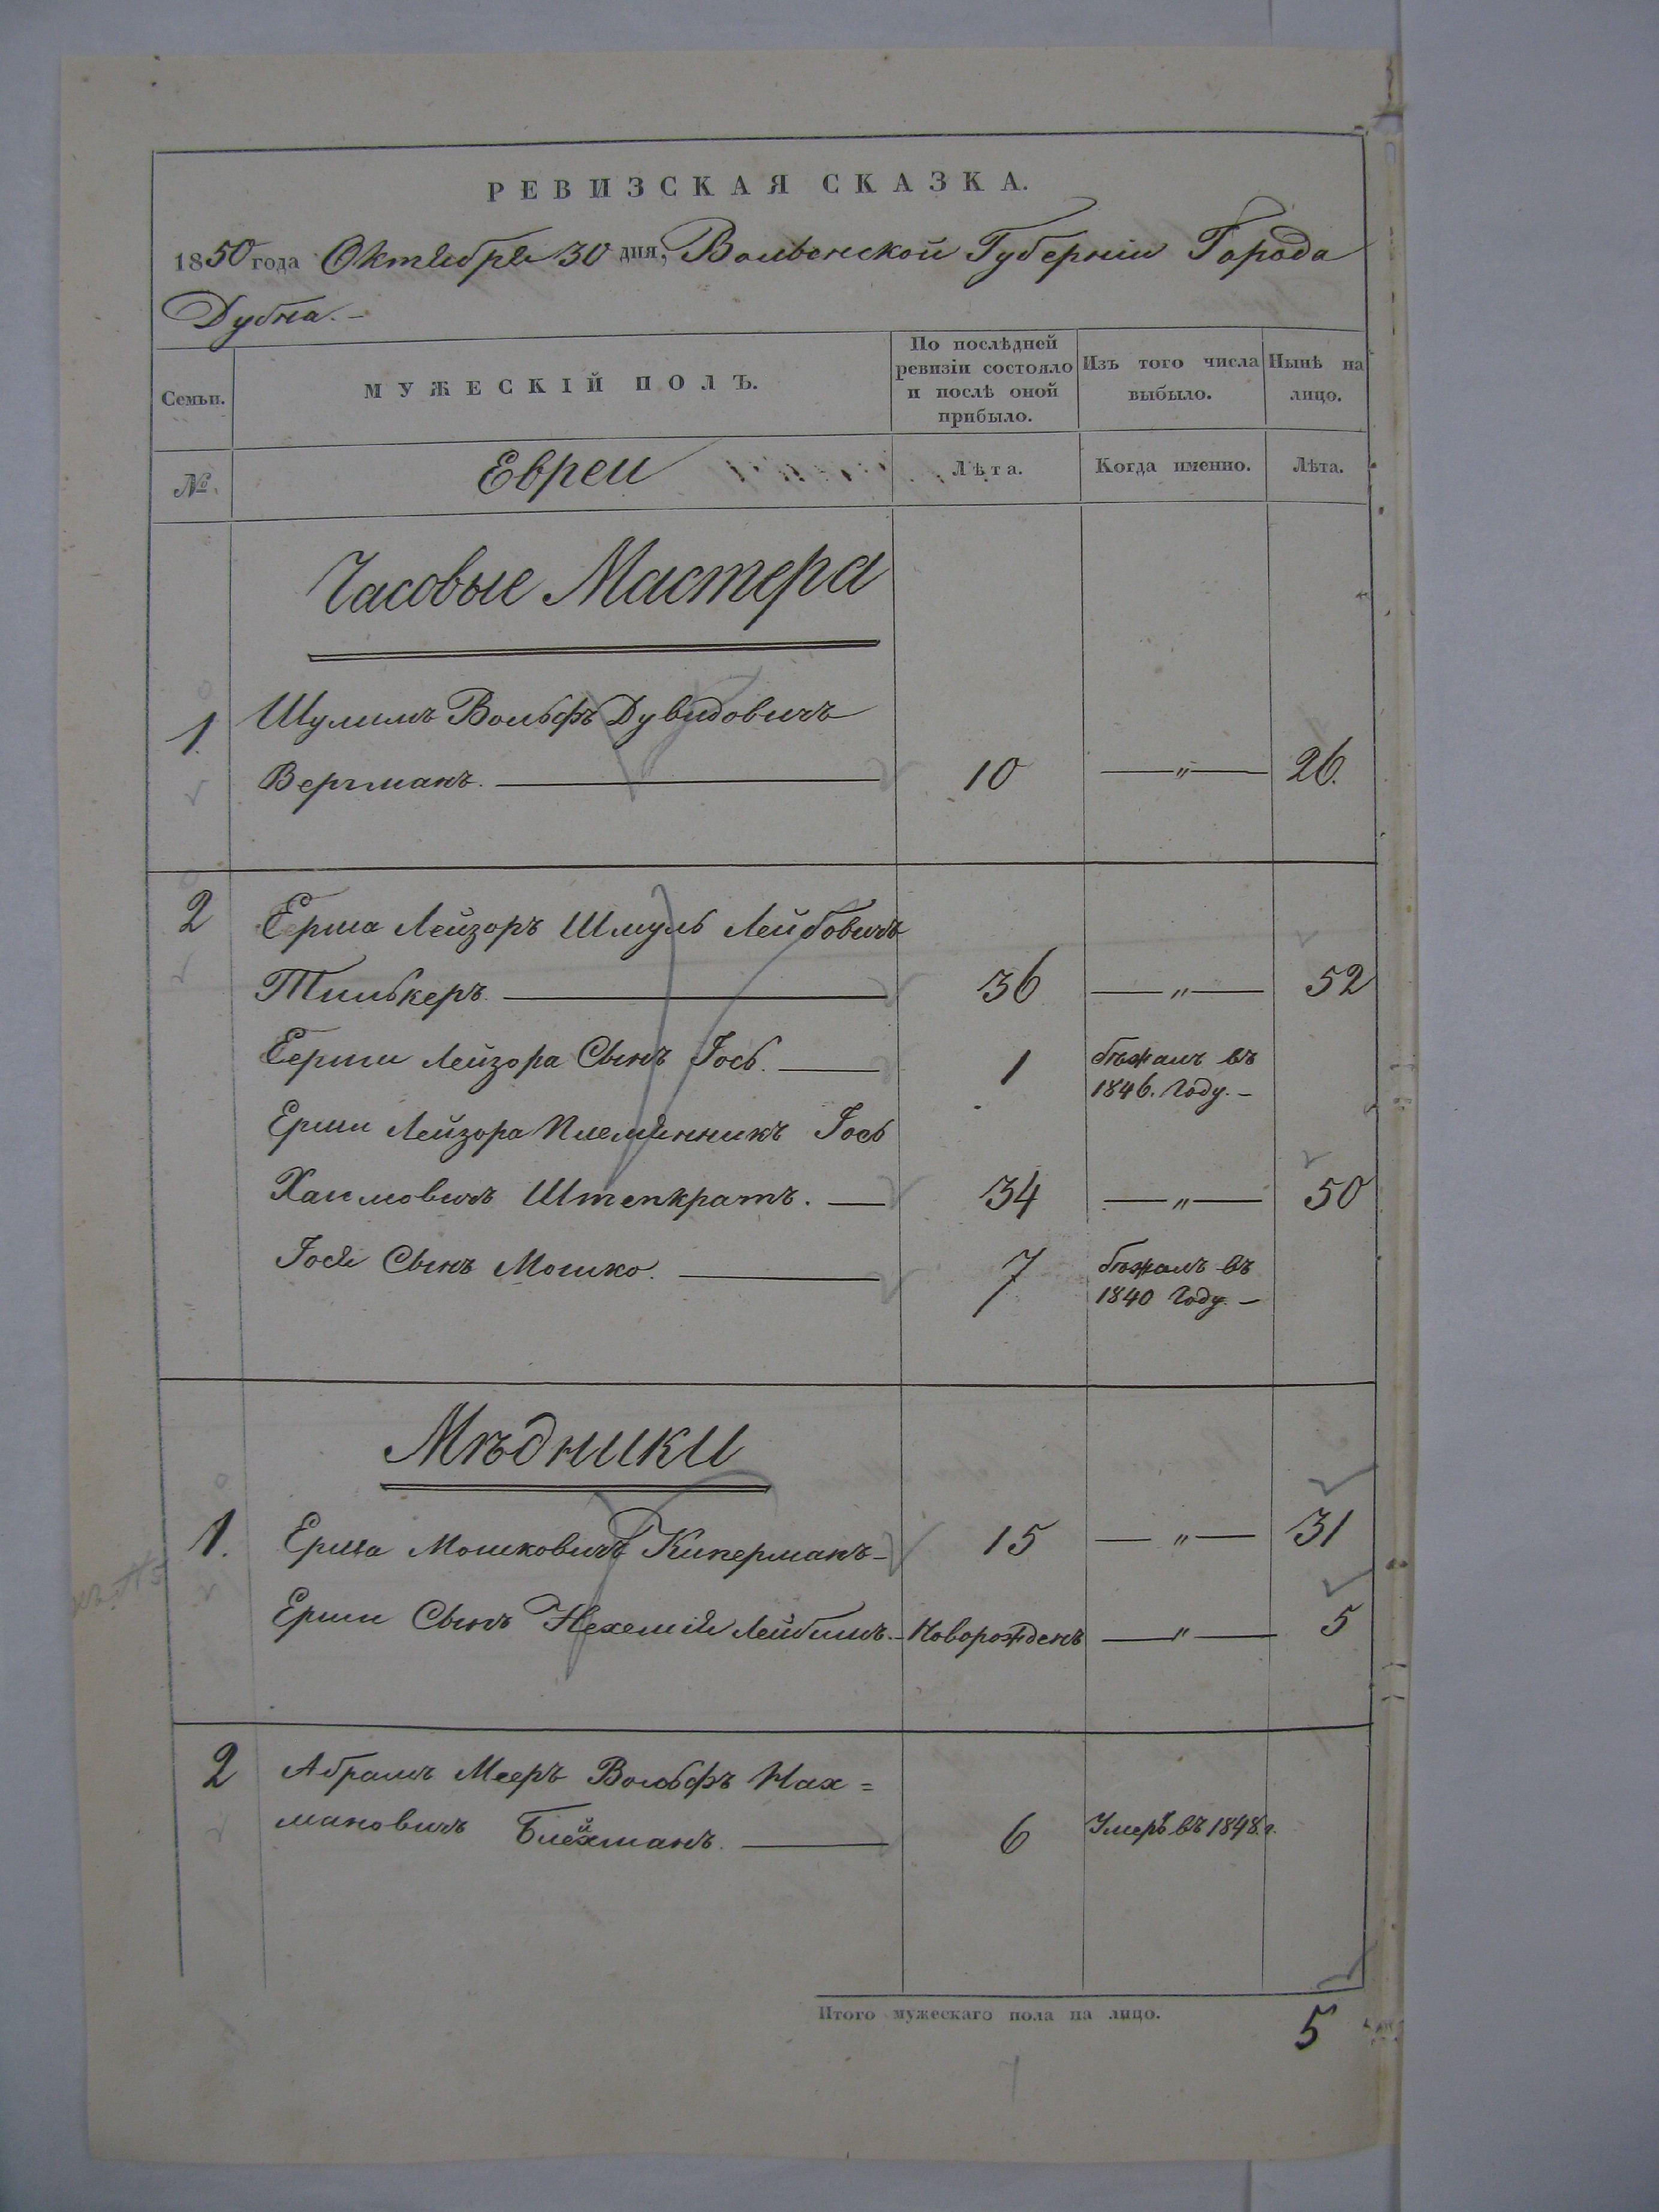 РЕВИЗСКАЯ СКАЗКА.
1850 года Октября 30 дня, Волынской Губерніи Города
Дубна. –
Семьи.
МУЖЕСКІЙ ПОЛЪ.
По послѣдней
ревизіи состояло
и послѣ оной
прибыло.
Изъ того числа
выбыло.
Нынѣ на
лицо.
№.
Евреи
Лѣта.
Когда именно.
Лѣта.
Часовые Мастера
1. Шулимъ Вольфъ Дувидовичъ
Вергманъ. 10 — " — 26.
2 Ерша Лейзоръ Шмуль Лейбовичъ
Тилькеръ. 36 — " — 52
Ерши Лейзора Сынъ Іось. 1 бѣжалъ въ
1846. Году. –
Ерши Лейзора Племянникъ Іось
Хаимовичъ Штепкратъ. 34 — " — 50
Іося Сынъ Мошко. 7 бѣжалъ въ
1840 Году. –
Мѣдники
1. Ерша Мошковичъ Киперманъ – 15 — " — 31
Ерши Сынъ Нехемія Лейбишъ. – Новорожденъ — " — 5
2 Абрамъ Мееръ Вольфъ Нах=
мановичъ Блейхманъ. 6 Умеръ въ 1848. г.
Итого мужескаго пола на лицо. 5